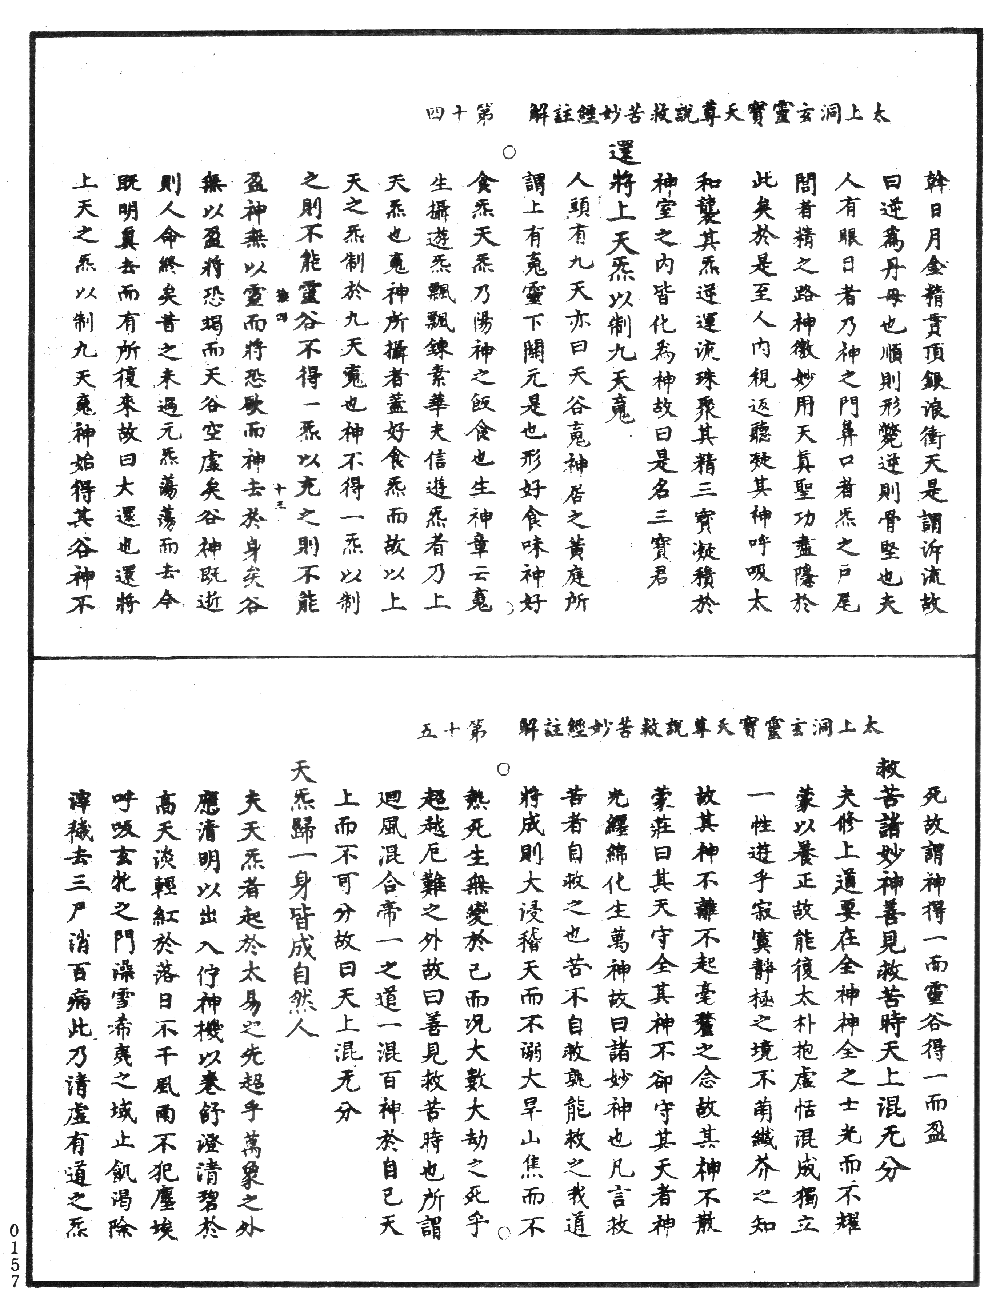 太上洞玄靈寶天尊說救苦妙經註解　第十四
幹日月金精貫頂銀浪衝天是謂泝流故
曰逆為丹母也順則形斃逆則骨堅也夫
人有眼目者乃神之門鼻口者炁之戶尾
閭者精之路神徹妙用天真聖功盡隱於
此矣於是至人內視返聽凝其神呼吸太
和襲其炁逆運流珠聚其精三寶凝積於
神室之內皆化為神故曰是名三寶君
還將上天炁以制九天䰟
人頭有九天亦曰天谷䰟神居之黃庭所
謂上有䰟靈下關元是也形好食味神好
食炁天炁乃陽神之飯食也生神章云䰟
生攝遊炁飄飄鍊素華夫信遊炁者乃上
天炁也䰟神所攝者蓋好食炁而故以上
天之炁制於九天䰟也神不得一炁以制
之則不能靈谷不得一炁以充之則不能
盈神無以靈而將恐歇而神去於身矣谷
無以盈將恐竭而天谷空虛矣谷神既逝
則人命終矣昔之未過元炁蕩蕩而去今
既明真去而有所復來故曰大還也還將
上天之炁以制九天䰟神始得其谷神不
太上洞玄靈寶天尊說救苦妙經註解　第十五
死故謂神得一而靈谷得一而盈
救苦諸妙神善見救苦時天上混无分
夫修上道要在全神神全之士光而不耀
蒙以養正故能復太朴抱虛恬混成獨立
一性遊乎寂寞靜極之境不萌纖芥之知
故其神不離不起毫釐之念故其神不散
蒙莊曰其天守全其神不卻守其天者神
光纏綿化生萬神故曰諸妙神也凡言救
苦者自救之也苦不自救孰能救之我道
將成則大浸稽天而不溺大旱山焦而不
熱死生無變於己而況大數大劫之死乎
超越厄難之外故曰善見救苦時也所謂
廻風混合帝一之道一混百神於自己天
上而不可分故曰天上混无分
天炁歸一身皆成自然人
夫天炁者起於太易之先超乎萬象之外
應清明以出入佇神機以卷舒澄清碧於
高天淡輕紅於落日不干風雨不犯塵埃
呼吸玄牝之門澡雪希夷之域止飢渴除
滓穢去三尸消百病此乃清虛有道之炁
0157